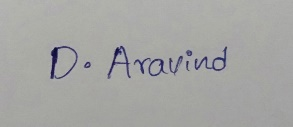 D. Aravind